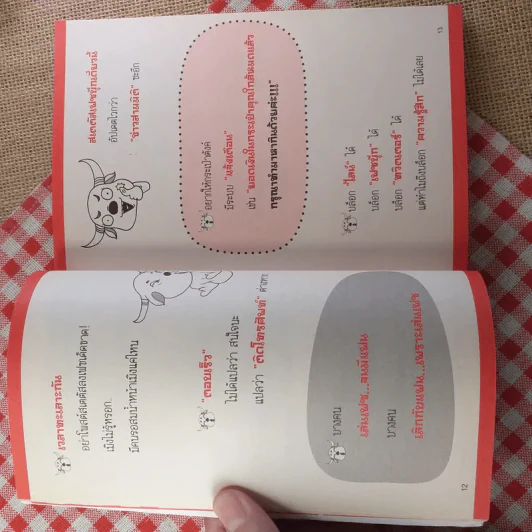 เวลาทะเลาะกัน
อย่าโพสต์สเตตัสลงเฟซเด็ดขาด!
เมิงไม่รู้หรอก..
มีคนรอสมน้ำหน้าเมิงแค่ไหน
"ตอบเร็ว"
ไม่ได้แปลว่า สนใจนะ
แปลว่า "ติดโทรศัพท์" ต่างหาก
บางคน
เล่นเฟซ...จนมีแฟน
บางคน
เลิกกับแฟน...เพราะเล่นเฟซ
12
สเตตัสเฟซบุ๊กเดี๋ยวนี้
อัปเดตไวกว่า
"ข่าวสามมิติ" ซะอีก
อยากให้กระเป๋าตังค์
มีระบบ "แจ้งเตือน"
เช่น "ยอดเงินในกระเป๋าคุณใกล้หมดแล้ว
กรุณาทำมาหากินด้วยค่ะ!!!"
บล็อก "ไลน์" ได้
บล็อก "เฟซบุ๊ก" ได้
บล็อก "ทวิตเตอร์" ได้
แต่ทำไมถึงบล็อก "ความรู้สึก" ไม่ได้เลย
13